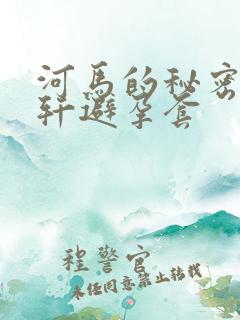 河马的秘密
轩避孕套
程警官
未经同意禁止转载